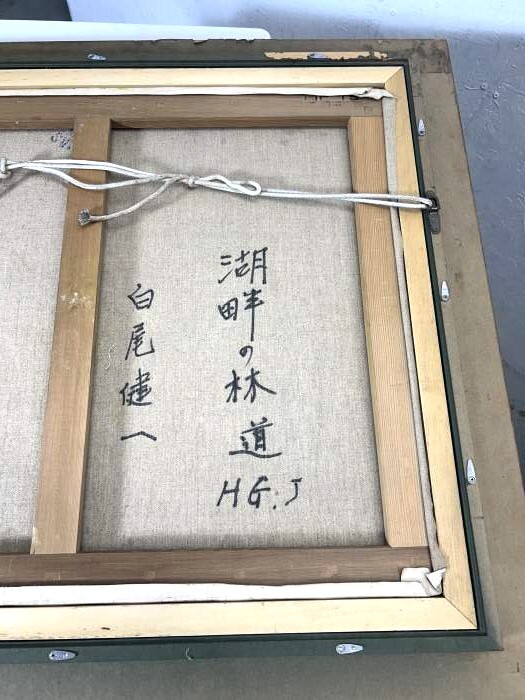 湖畔の林道
HG.J
白尾健一